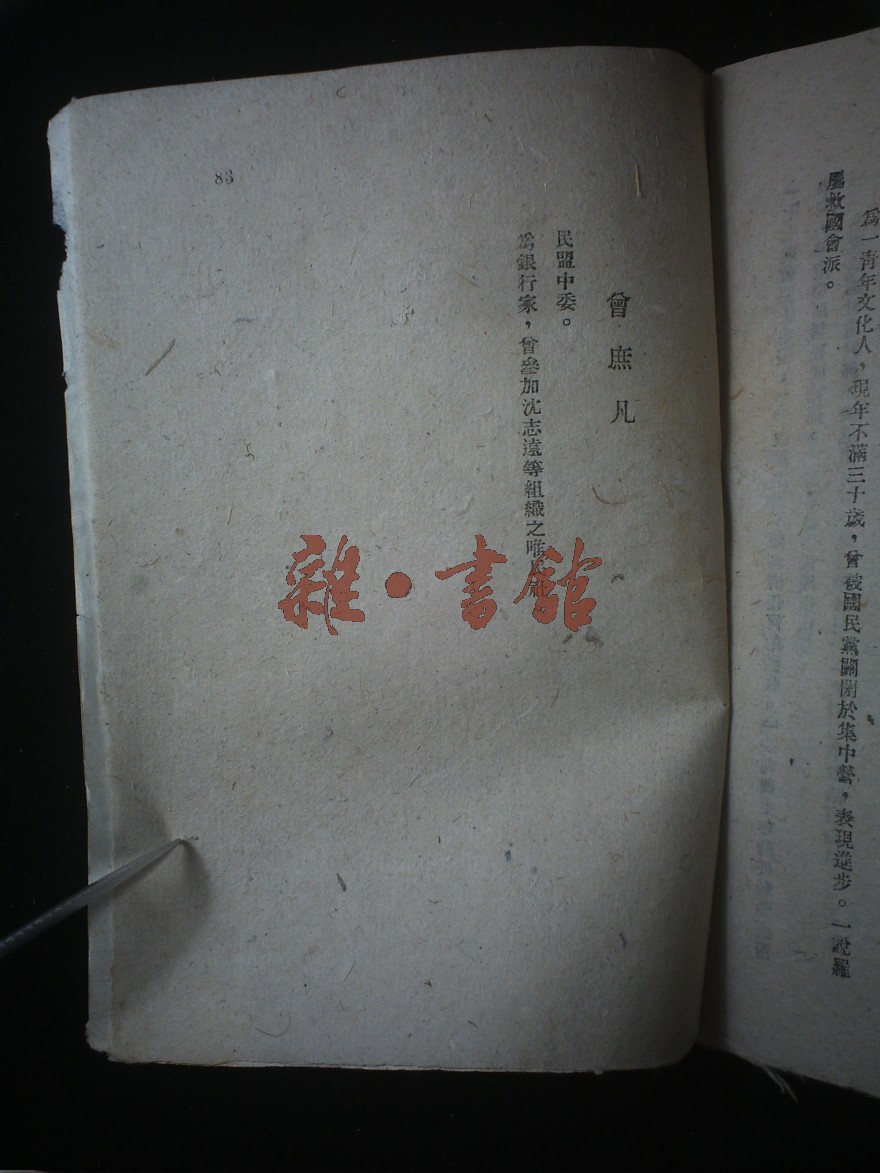 爲一靑年文化人，現年不滿三十歲，曾被國民黨關閉於集中營，表現進步。一說羅
屬救國會派。
曾庶凡
民盟中委。
爲銀行家，曾參加沈志遠等組織之唯民社
83
雜·書館